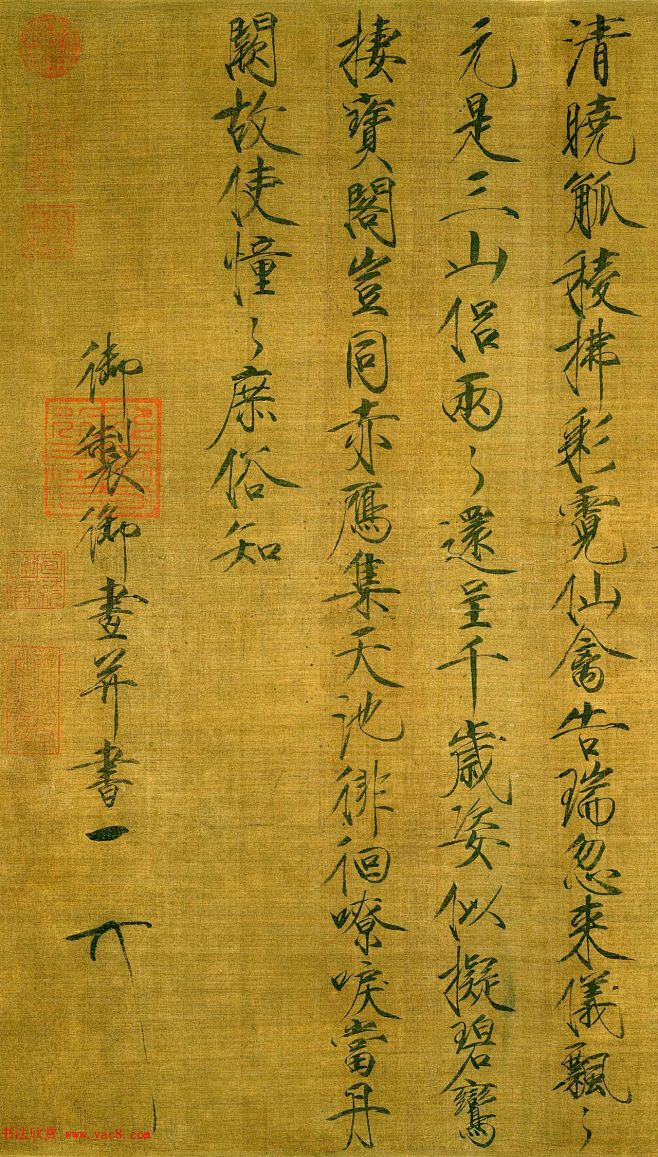 清曉觚稜拂彩霓仙禽告瑞忽来儀飄〻
元是三山侶兩〻還呈千歲姿似擬碧鸞
棲寶閣豈同赤鴈集天池徘徊嘹唳當丹
闕故使憧〻庶俗知
御製御畫并書
书法欣赏 www.yac8.com